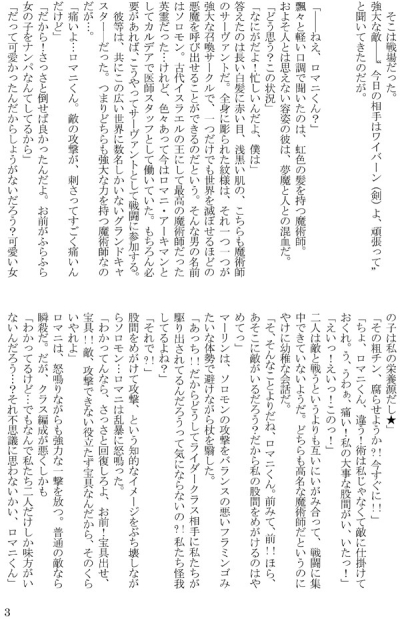 そこは戦場だった。
　強大な敵――。今日の相手はワイバーン（剣）よ、頑張って”
と聞いてきたのだが。

「――ねえ、ロマニくん？」
　飄々と軽い口調で聞いたのは、虹色の髪を持つ魔術師。
およそ人とは思えない容姿の彼は、夢魔と人との混血だ。
「どう思う？この状況」
「なにがだよ！忙しいんだよ、僕は」
　答えたのは長い白髪に赤い目、浅黒い肌の、こちらも魔術師
のサーヴァントだ。全身に彫られた紋様は、それ一つ一つが
強大な召喚サークルで、一つだけでも世界を滅ぼせるほどの
悪魔を呼び出せることができるのだという。そんな男の名前
はソロモン。古代イスラエルの王にして最高の魔術師だった
英霊だった…けれど、色々あって今はロマニ・アーキマンと
してカルデアで医師スタッフとして働いていた。もちろん必
要があれば、こうやってサーヴァントとして戦闘に参加する。
　彼等は、共にこの広い世界に数名しかいないグランドキャ
スター――だった。つまりどちらも強大な力を持つ魔術師なの
だが…。
「痛いよ…ロマニくん。敵の攻撃が、刺さってすごく痛いん
だけど」
「だから！さっさと倒せば良かったんだよ。お前がふらふら
女の子をナンパなんてしてるから」
「だって可愛かったんだからしょうがないだろう？可愛い女
の子は私の栄養源だし★」
「その粗チン、腐らせようか？！今すぐに！！」
「ちょ、ロマニくん、違う！術は私じゃなくて敵に仕掛けて
おくれ。う、うわぁ、痛い！私の大事な股間がい、いたっ！」
「えいっ！えいっ！このっ！」
　二人は敵と戦うというよりも互いにいがみ合って、戦闘に集
中できていないようだ。どちらも高名な魔術師だというのに
やけに幼稚な会話だ。
「そ、そんなことよりだね、ロマニくん。前みて、前！！ほら、
あそこに敵がいるだろう？だから私の股間をめがけるのはや
めてっ」
　マーリンは、ソロモンの攻撃をバランスの悪いフラミンゴみ
たいな体勢で避けながら杖を翳した。
「あっち！！だからどうしてライダークラス相手に私たちが
駆り出されてるんだろうって気にならないの？！私たち怪我
してるよね？」
「それで？！」
　股間をめがけて攻撃、という知的なイメージをぶち壊しなが
らソロモン…ロマニは乱暴に怒鳴った。
「わかってんなら、さっさと回復しろよ、お前！宝具出せ、
宝具！！敵、攻撃できない役立たず宝具なんだから、そのくら
いやれよ」
　ロマニは、怒鳴りながらも強力な一撃を放つ。普通の敵なら
瞬殺だ。だが、クラス編成が悪くしかも
「わかってるけど…でもなんで私たち二人だけしか味方がい
ないんだろう…？それ不思議に思わないかい、ロマニくん」
3